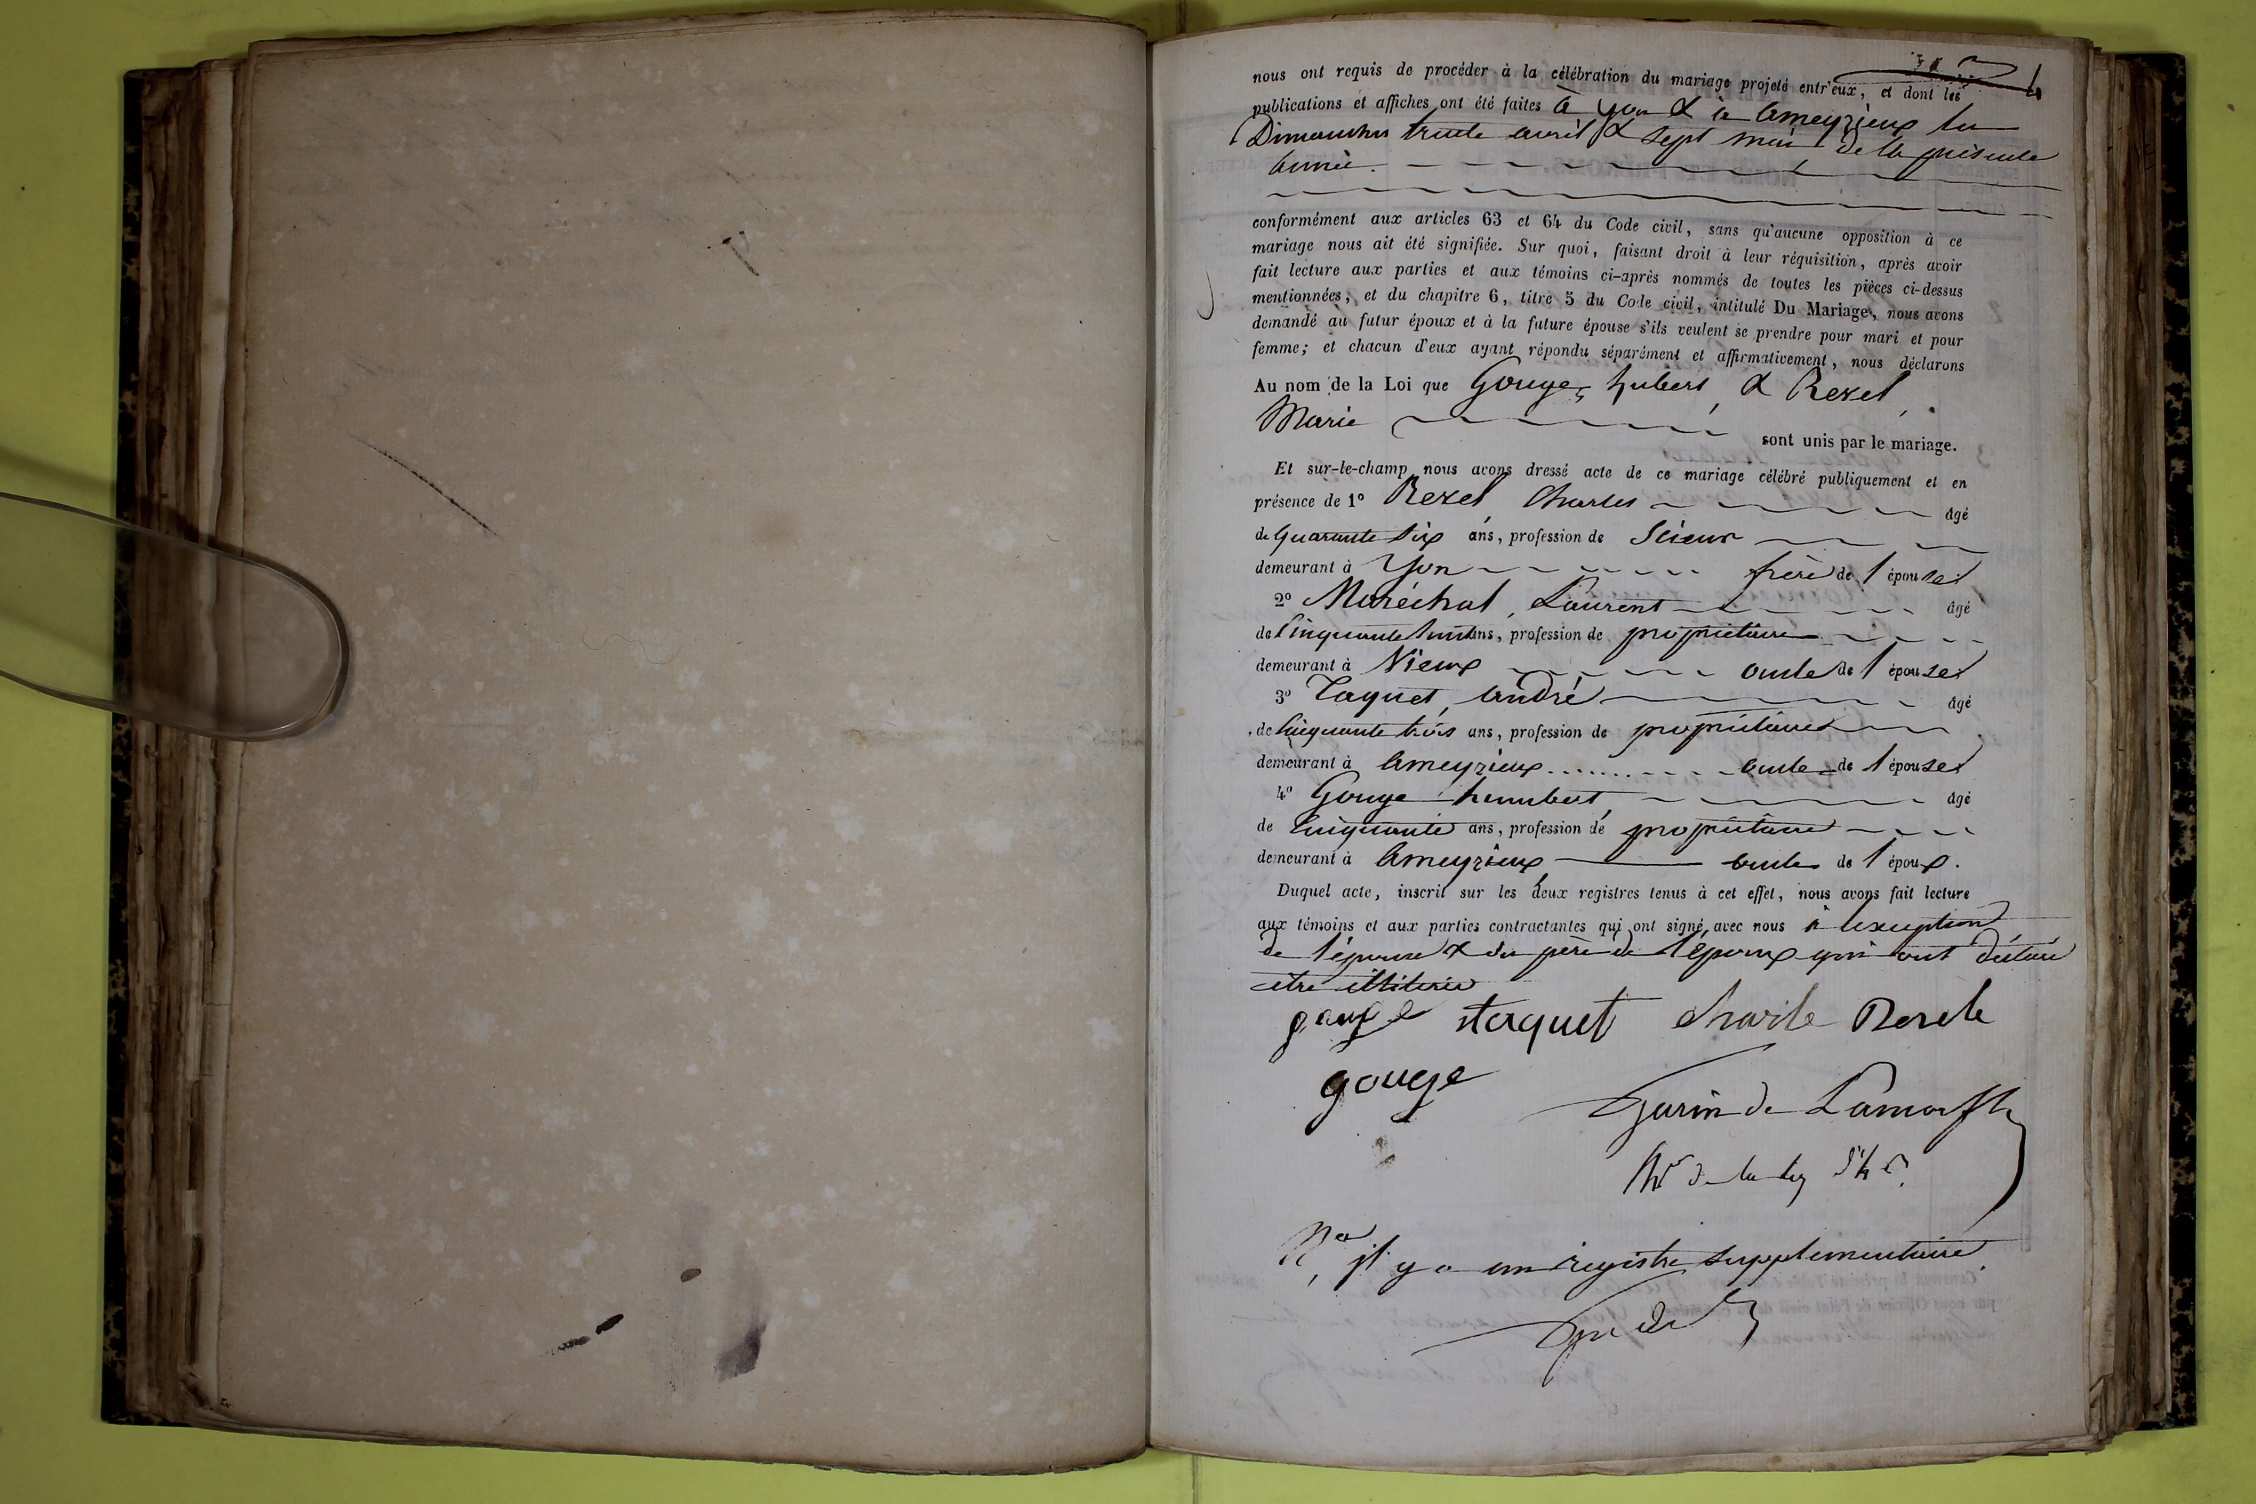 nous ont requis de procéder à la célébration du mariage projeté entr'eux, et dont les
publications et affiches ont été faites à yon & à ameyzieux les
Dimanches trente avril & sept mai de la présente
année.
conformément aux articles 63 et 64 du Code civil, sans qu'aucune opposition à ce
mariage nous ait été signifiée. Sur quoi, faisant droit à leur réquisition, après avoir
fait lecture aux parties et aux témoins ci-après nommés de toutes les pièces ci-dessus
mentionnées, et du chapitre 6, titre 5 du Code civil, intitulé Du Mariage, nous avons
demandé au futur époux et à la future épouse s'ils veulent se prendre pour mari et pour
femme; et chacun d'eux ayant répondu séparément et affirmativement, nous déclarons
Au nom de la Loi que Gouge, hubert, & Rexel,
Marie sont unis par le mariage.
Et sur-le-champ nous avons dressé acte de ce mariage célébré publiquement et en
présence de 1° Rexel, Charles âgé
de quarante six ans, profession de Scieur
demeurant à Yon frère de l'épouse
2° Maréchal, Laurent âgé
de Cinquante huit ans, profession de propriétaire
demeurant à Vieux oncle de l'épouse
3° Taquet, andré âgé
de Cinquante trois ans, profession de propriétaire
demeurant à ameyzieux oncle de l'épouse
4° Gouge humbert, âgé
de Cinquante ans, profession de propriétaire
demeurant à ameyzieux, oncle de l'époux.
Duquel acte, inscrit sur les deux registres tenus à cet effet, nous avons fait lecture
aux témoins et aux parties contractantes qui ont signé avec nous à l'exception
de l'épouse & du père de l'époux qui ont déclaré
être illitérés
gouge taquet charle Rexele
gouge
Garin de Lamorfla
il y a un registre supplementaire.